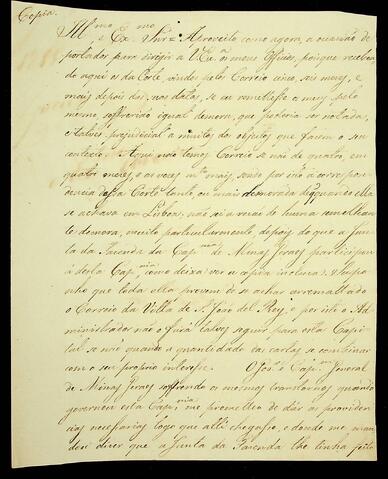 Copia
Ill.mo e Ex.mo Snr.= Aproveito como agora, a ocasião de
portador para dirigir a V. Ex.a os meus Officios, porque receben
do aqui os da Corte, vindos pelo Correio cinco, seis mezes, e
mais depois das suas datas, se eu remetesse os meus pelo
mesmo soffrerião igual demora, que poderia ser notada,
e talvez prejudicial a muitos dos objectos que fazem o seu
contexto. Aqui não temos Correio se não de quatro, em
quatro mezes, e as vezes m.to mais, sendo por isto a corres
pondencia dessa Corte tanto, ou mais demorada do que ella
se achava em Lisboa, não sei a razão de huma semelhan
te demora, muito particularmente, depois do que a Jun
ta da Fazenda da Cap.nia de Minas Geraes participou
á desta Cap.nia como deixa ver a copia incluza: Supo
nho que toda ella provem de se achar arrematado
o Correio da Villa de S. João del Rey, e por isto o Ad
ministrador não o fará talvez seguir para esta Capi
tal se não quando a quantidade das cartas se combinar
com o seu proprio interesse. O Gov.or e Cap.m General
de Minas Geraes soffrendo os mesmos transtornos quando
governou esta Cap.nia me prometteo de dár as providen
cias necessarias logo que alli chegasse, e donde me man
dou dizer que a Junta da Fazenda lhe tinha feito